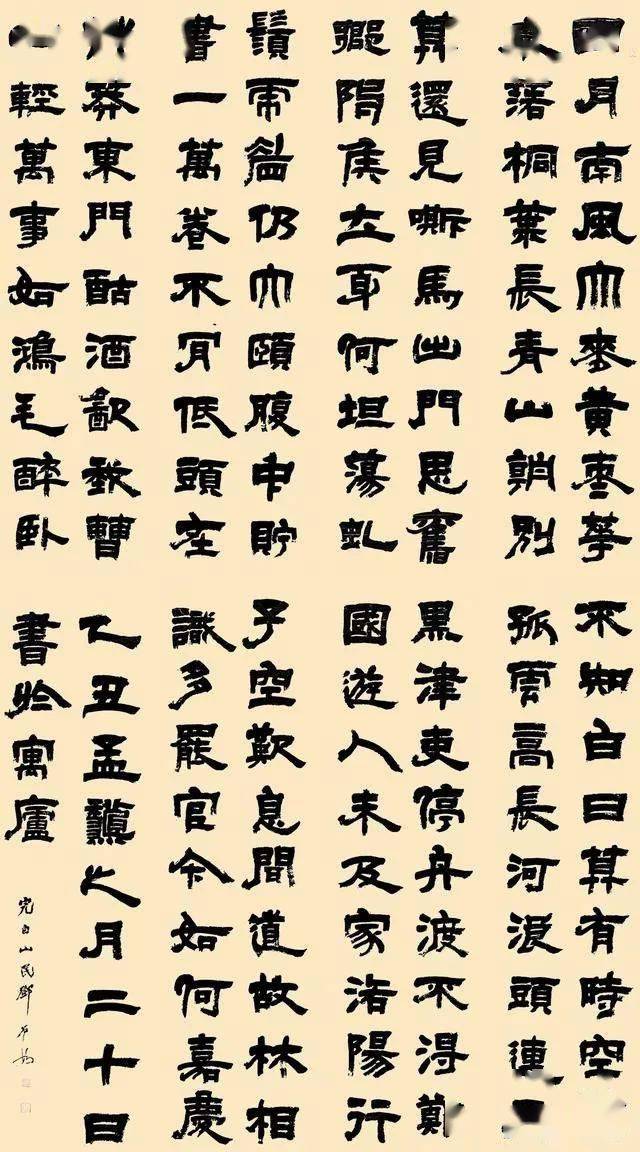 四月南風大麥黃棗華
未落桐葉長青山朝別
莫還見嘶馬出門思舊
鄉陳侯立身何坦蕩虬
鬚虎眉仍大頤腹中貯
書一萬卷不肯低頭在
艸莽東門酤酒飲我曹
心輕萬事如鴻毛醉臥
不知白日莫有時空
孤雲高長河浪頭連
黑津吏停舟渡不得鄭
國遊人未及家洛陽行
子空歎息聞道故林相
識多罷官今如何嘉慶
乙丑孟龝七月二十日
書於寓廬
完白山民鄧石如